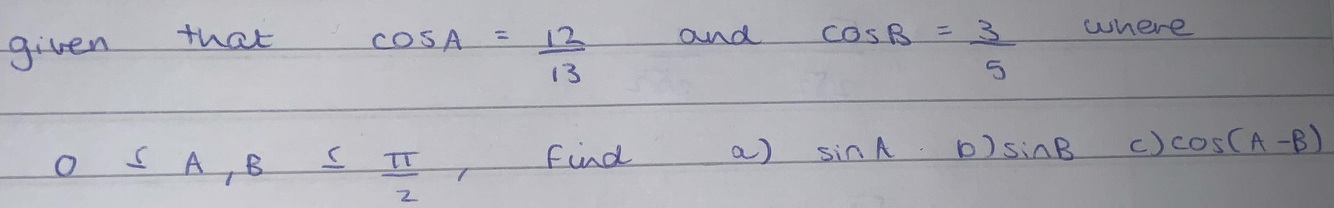 given that cosA = 12/13 and cosB = 3/5 where
0 ≤ A, B ≤ π/2, find a) sinA. b) sinB c) cos(A-B)